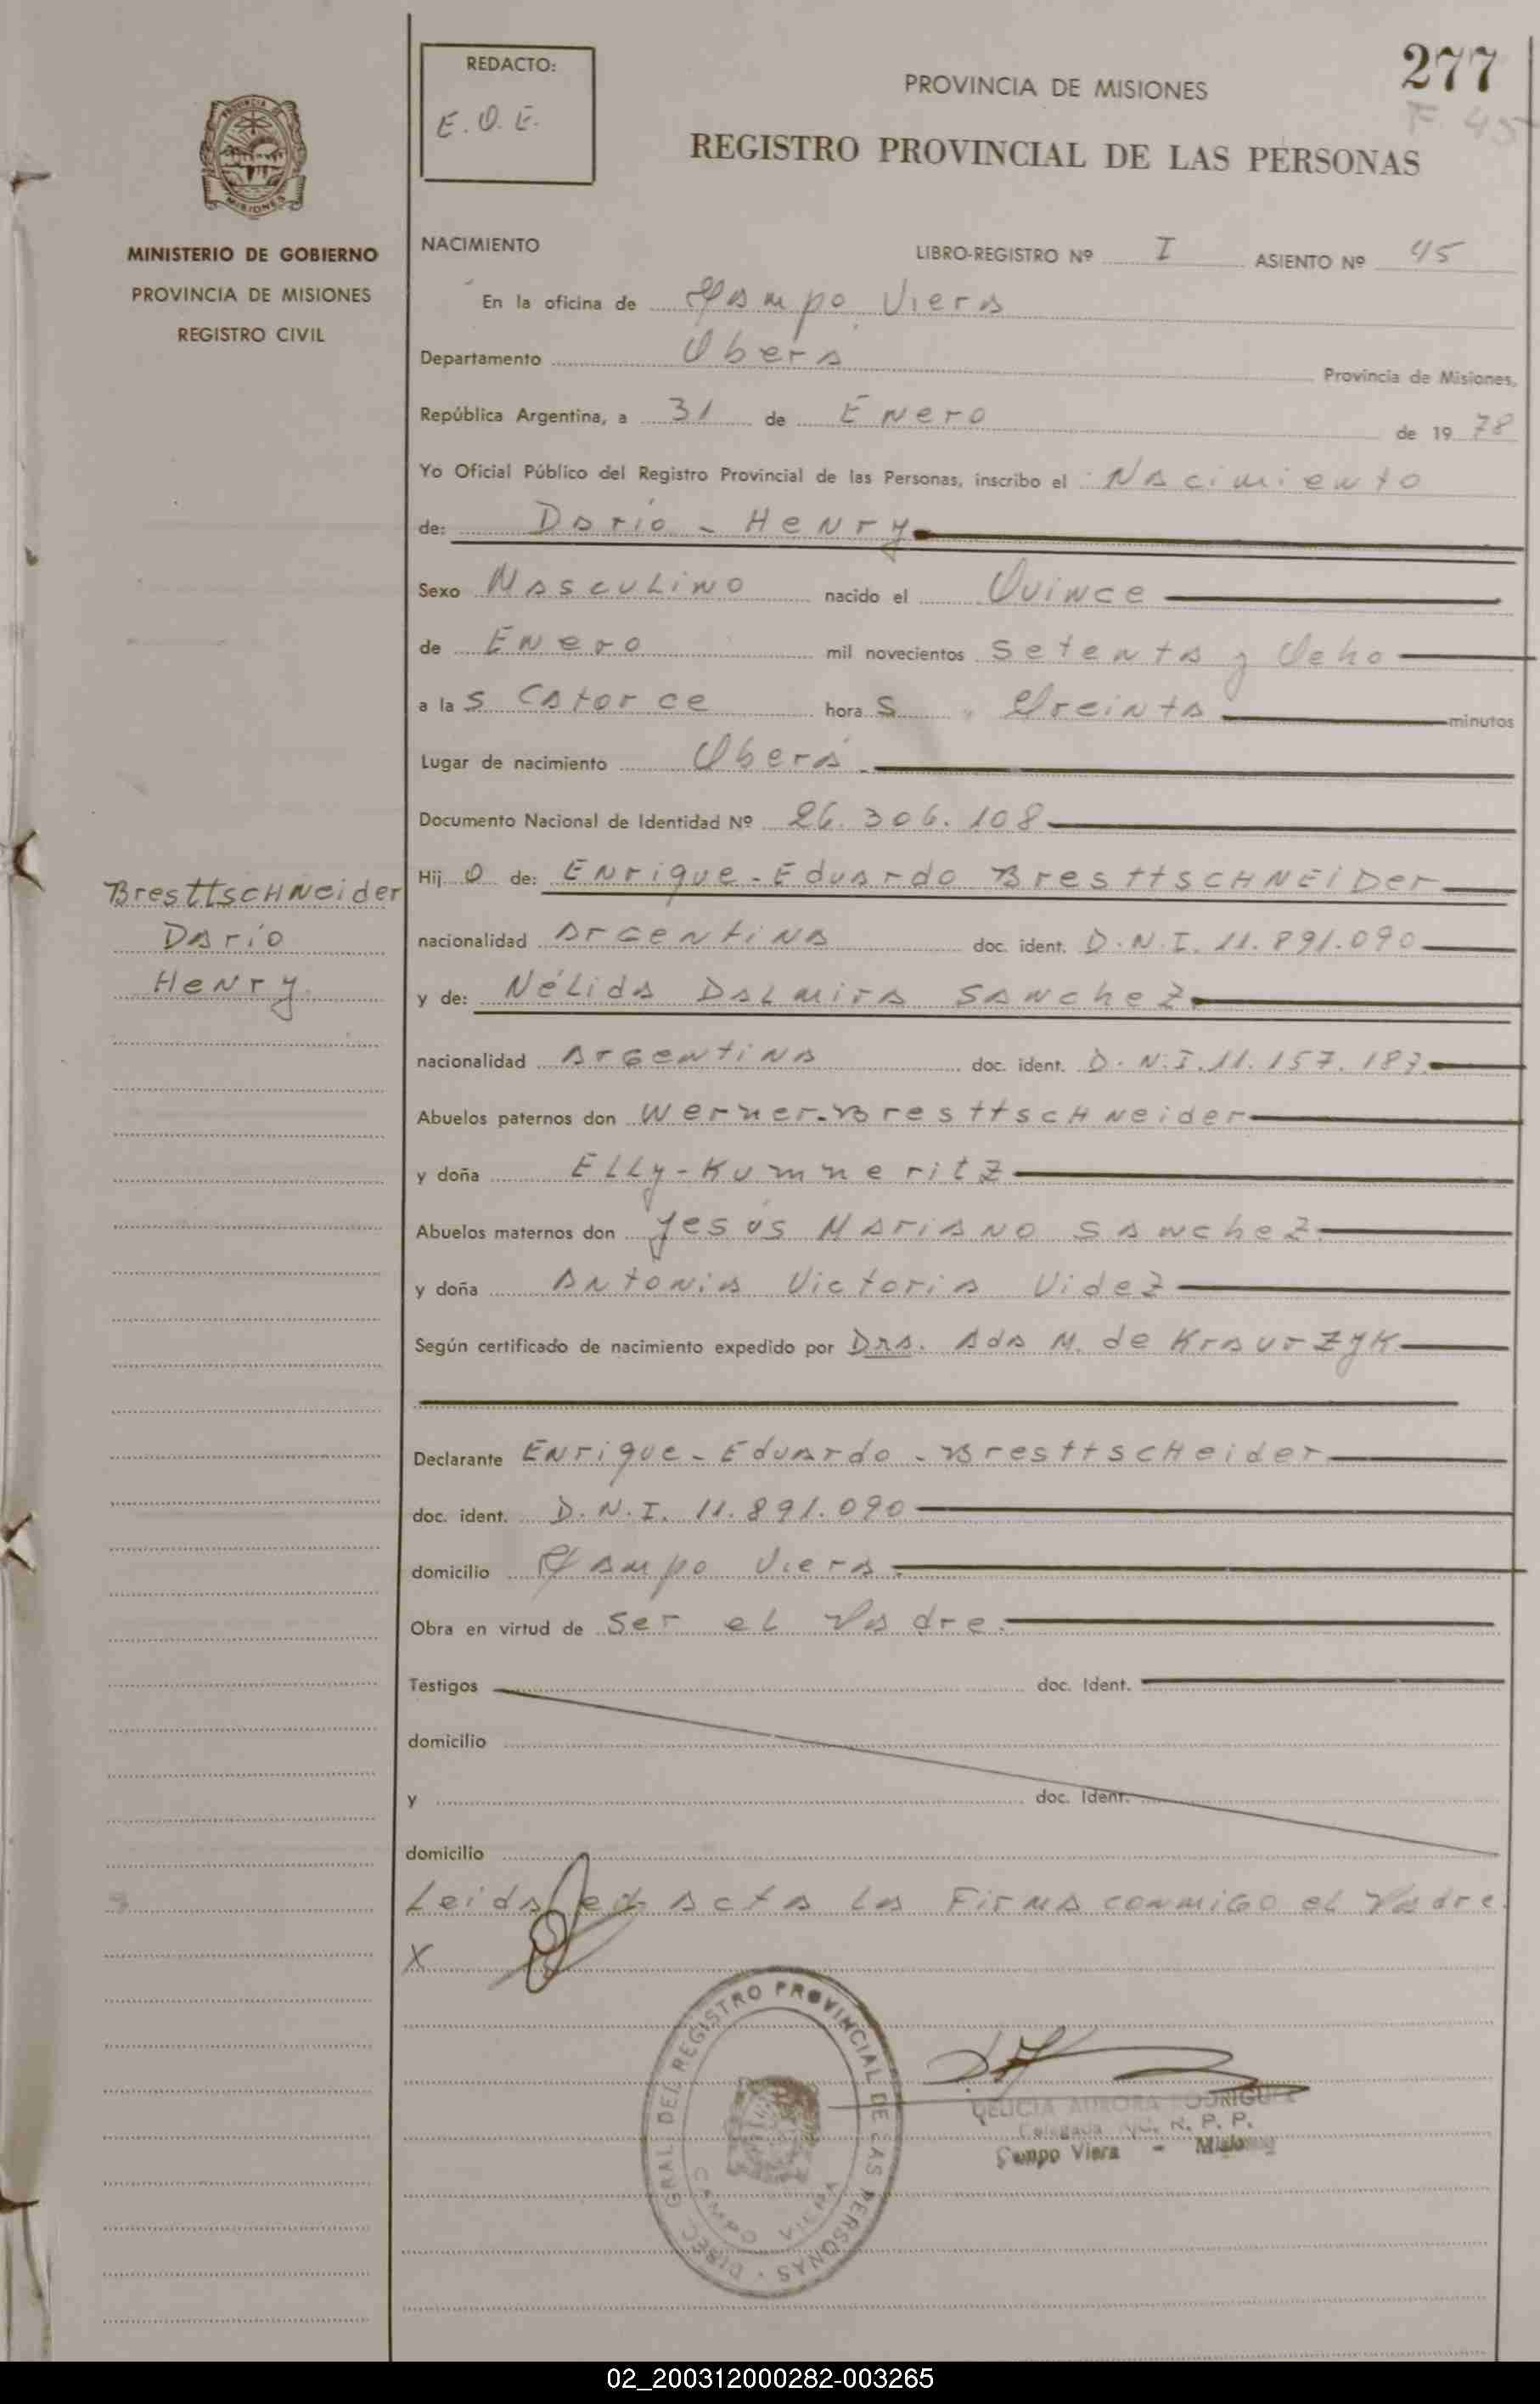 REDACTO:
E.O.E.
277
F. 45
PROVINCIA DE MISIONES
REGISTRO PROVINCIAL DE LAS PERSONAS
MINISTERIO DE GOBIERNO
PROVINCIA DE MISIONES
REGISTRO CIVIL
NACIMIENTO
LIBRO-REGISTRO Nº I ASIENTO Nº 45
En la oficina de Campo Viera
Departamento Oberá Provincia de Misiones,
República Argentina, a 31 de Enero de 1978
Yo Oficial Público del Registro Provincial de las Personas, inscribo el Nacimiento
de: Darío - Henry
Sexo Masculino nacido el Quince
de Enero mil novecientos Setenta y Ocho
a las Catorce horas Treinta minutos
Lugar de nacimiento Oberá
Documento Nacional de Identidad Nº 26.306.108
Hijo de: Enrique - Eduardo BresttscHNEiDer
nacionalidad Argentina doc. ident. D.N.I. 11.891.090
y de: Nélida Dalmira Sanchez
nacionalidad Argentina doc. ident. D.N.I. 11.157.187
Abuelos paternos don Werner - BresttscHNeider
y doña Elly - Kummeritz
Abuelos maternos don Jesús Mariano Sanchez
y doña Antonia Victoria Videz
Según certificado de nacimiento expedido por Dra. Ada M. de Kraurzyk
Declarante Enrique - Eduardo - BresttscHeider
doc. ident. D.N.I. 11.891.090
domicilio Campo Viera
Obra en virtud de Ser el Padre.
Testigos doc. Ident.
domicilio
y doc. Ident.
domicilio
Leida el Acta La Firma conmigo el Padre.
X
BresttscHNeider
Darío
Henry
DIREC. GRAL. DEL REGISTRO PROVINCIAL DE LAS PERSONAS
CAMPO VIERA
DELICIA AURORA RODRIGUEZ
Delegada R. P. P.
Campo Viera - Misiones
02_200312000282-003265